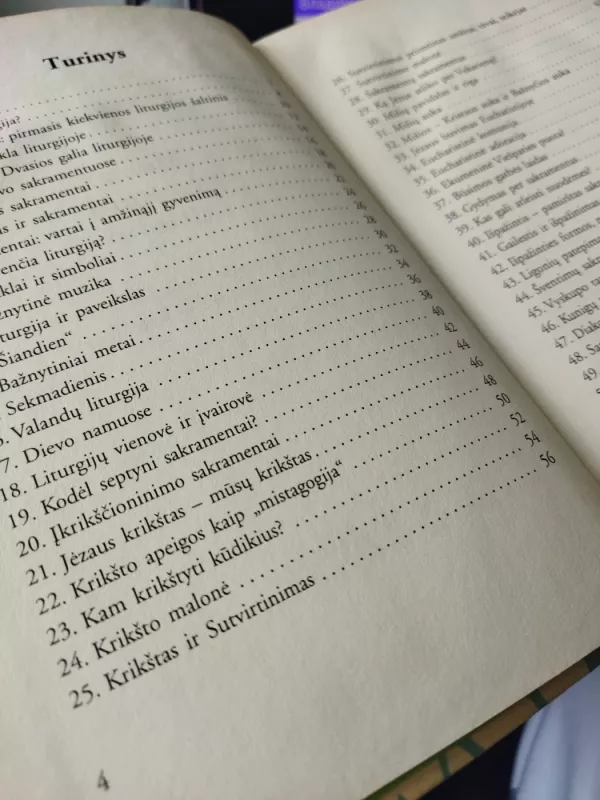 Turinys
gija?
: pirmasis kiekvienos liturgijos šaltinis
kla liturgijoje
Dvasios galia liturgijoje
vo sakramentuose
s sakramentai
is ir sakramentai
entai: vartai į amžinąjį gyvenimą
enčia liturgiją? 28
klai ir simboliai 30
žnytinė muzika 32
turgija ir paveikslas 34
Šiandien“ 36
Bažnytiniai metai 38
Sekmadienis 40
Valandų liturgija 42
7. Dievo namuose 44
18. Liturgijų vienovė ir įvairovė 46
19. Kodėl septyni sakramentai? 48
20. Įkrikščioninimo sakramentai 50
21. Jėzaus krikštas – mūsų krikštas 52
22. Krikšto apeigos kaip „mistagogija“ 54
23. Kam krikštyti kūdikius? 56
24. Krikšto malonė
25. Krikštas ir Sutvirtinimas
4
28. Sakramentų sakramentas
29. Ką Jėzus atliko per Vakarienę?
30. Mišių pavadinimas ir eiga
31. Mišių auka
32. Mišios – Kristaus auka ir Bažnyčios auka
33. Jėzaus buvimas Eucharistijoje
34. Eucharistinė komunija
35. Eucharistinė adoracija
36. Ekumeninė Viešpaties puota?
37. Būsimos garbės laidas
38. Gydymas per sakramentus
39. Kas gali atleisti nuodėmes?
40. Išpažintis – pamirštas sakram
41. Gailestis ir išpažinimas
42. Išpažinties formos,
43. Ligonių patepim
44. Šventimų sakram
45. Vyskupo tar
46. Kunigų
47. Diako
48. Sa
49.